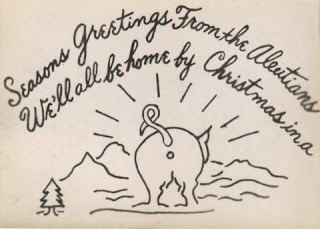 Seasons Greetings From the Aleutians
We'll all be home by Christmas in a